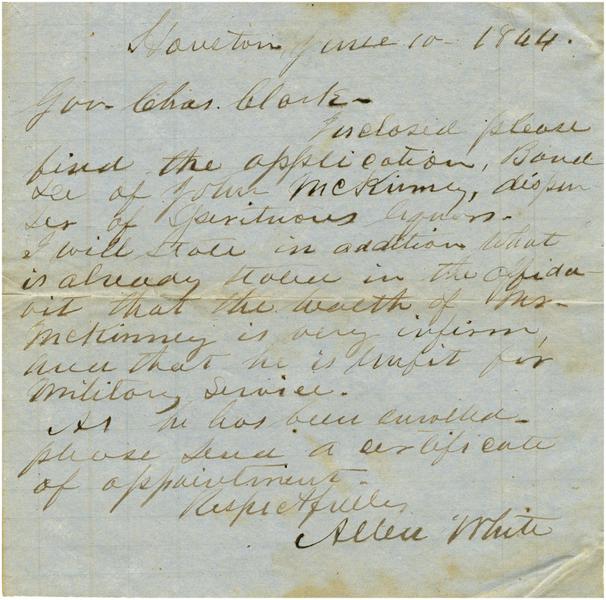 Houston June 10 - 1864.
Gov - Chas. Clark -
Inclosed please
find the application, Bond
&c of John McKinney, dispen
ser of Spirituous liquors -
I will state in addition what
is already stated in the affida-
vit that the health of Mr -
McKinney is very infirm,
and that he is unfit for
Military Service.
As he has been enrolled -
please send a certificate
of appointment -
Respectfully
Allen White